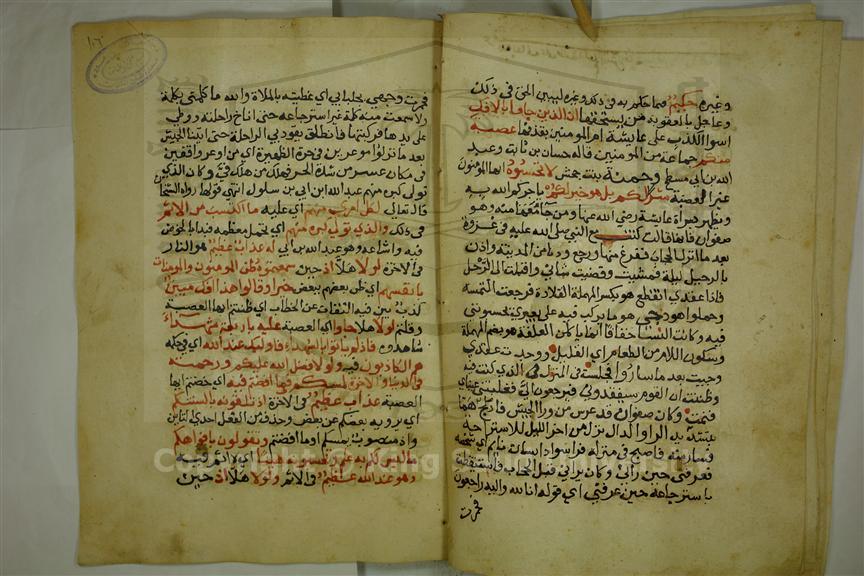 وغيره حكيم فيما حكم به في ذلك وغيره ليبين الحق في ذلك
وعاجل بالعقوبة من يستحقها ان الذين جاؤا بالافك
اسوا الكذب على عايشة ام المومنين بقذفها عصبة
منكم جماعة من المومنين قاله حسان بن ثابت وعبد
الله بن ابي ومسطح وحمنة بنت جحش لا تحسبوه ايها المومنون
غير العصبة شرا لكم بل هو خير لكم ياجركم الله به
ويظهر براة عايشة رضي الله عنها ومن جا معها منه وهو
صفوان فانها قالت كنت مع النبي صلى الله عليه في غزوة
بعد ما انزل الحجاب ففرغ منها ورجع ودنا من المدينة واذن
بالرحيل ليلة فمشيت وقضيت شاني واقبلت الى الرحل
فاذا عقدي انقطع هو بكسر المهملة القلادة فرجعت التمسه
وحملوا هودجي هو ما يركب فيه على بعيري يحسبونني
فيه وكانت النسا خفافا انما ياكلن العلقة هو بضم المهملة
وسكون اللام من الطعام اي القليل ووجدت عقدي
وجيت بعد ما ساروا فجلست في المنزل الذي كنت فيه
وظننت ان القوم سيفقدوني فيرجعون الي فغلبتني عيناي
فنمت وكان صفوان قد عرس من ورا الجيش فادلج هما
بتشديد الرا والدال نزل من اخر الليل للاستراحة
فسار منه فاصبح في منزله فراي سواد انسان نايم اي شخصه
فعرفني حين راني وكان يراني قبل الحجاب فاستيقظت
باسترجاعه حين عرفني اي قوله انا لله وانا اليه راجعون
فخمرت
١٠٦
فخمرت وجهي بجلبابي اي غطيته بالملاة والله ما كلمني بكلمة
ولا سمعت منه كلمة غير استرجاعه حتى اناخ راحلته ووطي
على يدها فركبتها فانطلق يقود بي الراحلة حتى اتينا الجيش
بعد ما نزلوا موغرين في حر الظهيرة اي من اوغر واقفين
في مكان وغر من شدة الحر فهلك من هلك في وكان الذي
تولى كبره منهم عبد الله ابن ابي بن سلول انتهى قولها رواه الشيخان
قال تعالى لكل امري منهم اي عليه ما اكتسب من الاثم
في ذلك والذي تولى كبره منهم اي تحمل معظمه فبدا بالخوض
فيه واشاعه وهو عبد الله بن ابي له عذاب عظيم هو النار
في الاخرة لولا هلا اذ حين سمعتموه ظن المومنون والمومنات
بانفسهم اي ظن بعضهم ببعض خيرا وقالوا هذا افك مبين
كذب بين فيه التفات عن الخطاب اي ظننتم ايها العصبة
وقلتم لولا هلا جاوا اي العصبة عليه باربعة شهداء
شاهدوه فاذ لم ياتوا بالشهداء فاوليك عند الله اي في حكمه
هم الكاذبون فيه ولولا فضل الله عليكم ورحمته
في الدنيا والاخرة لمسكم فيما افضتم فيه اي خضتم ايها
العصبة عذاب عظيم في الاخرة اذ تلقونه بالسنتكم
اي يرويه بعضكم عن بعض وحذف من الفعل احدى التاين
واذ منصوب بمسكم او بافضتم وتقولون بافواهكم
ما ليس لكم به علم وتحسبونه هينا اي لا اثم فيه
وهو عند الله عظيم في الاثم ولولا هلا اذ حين